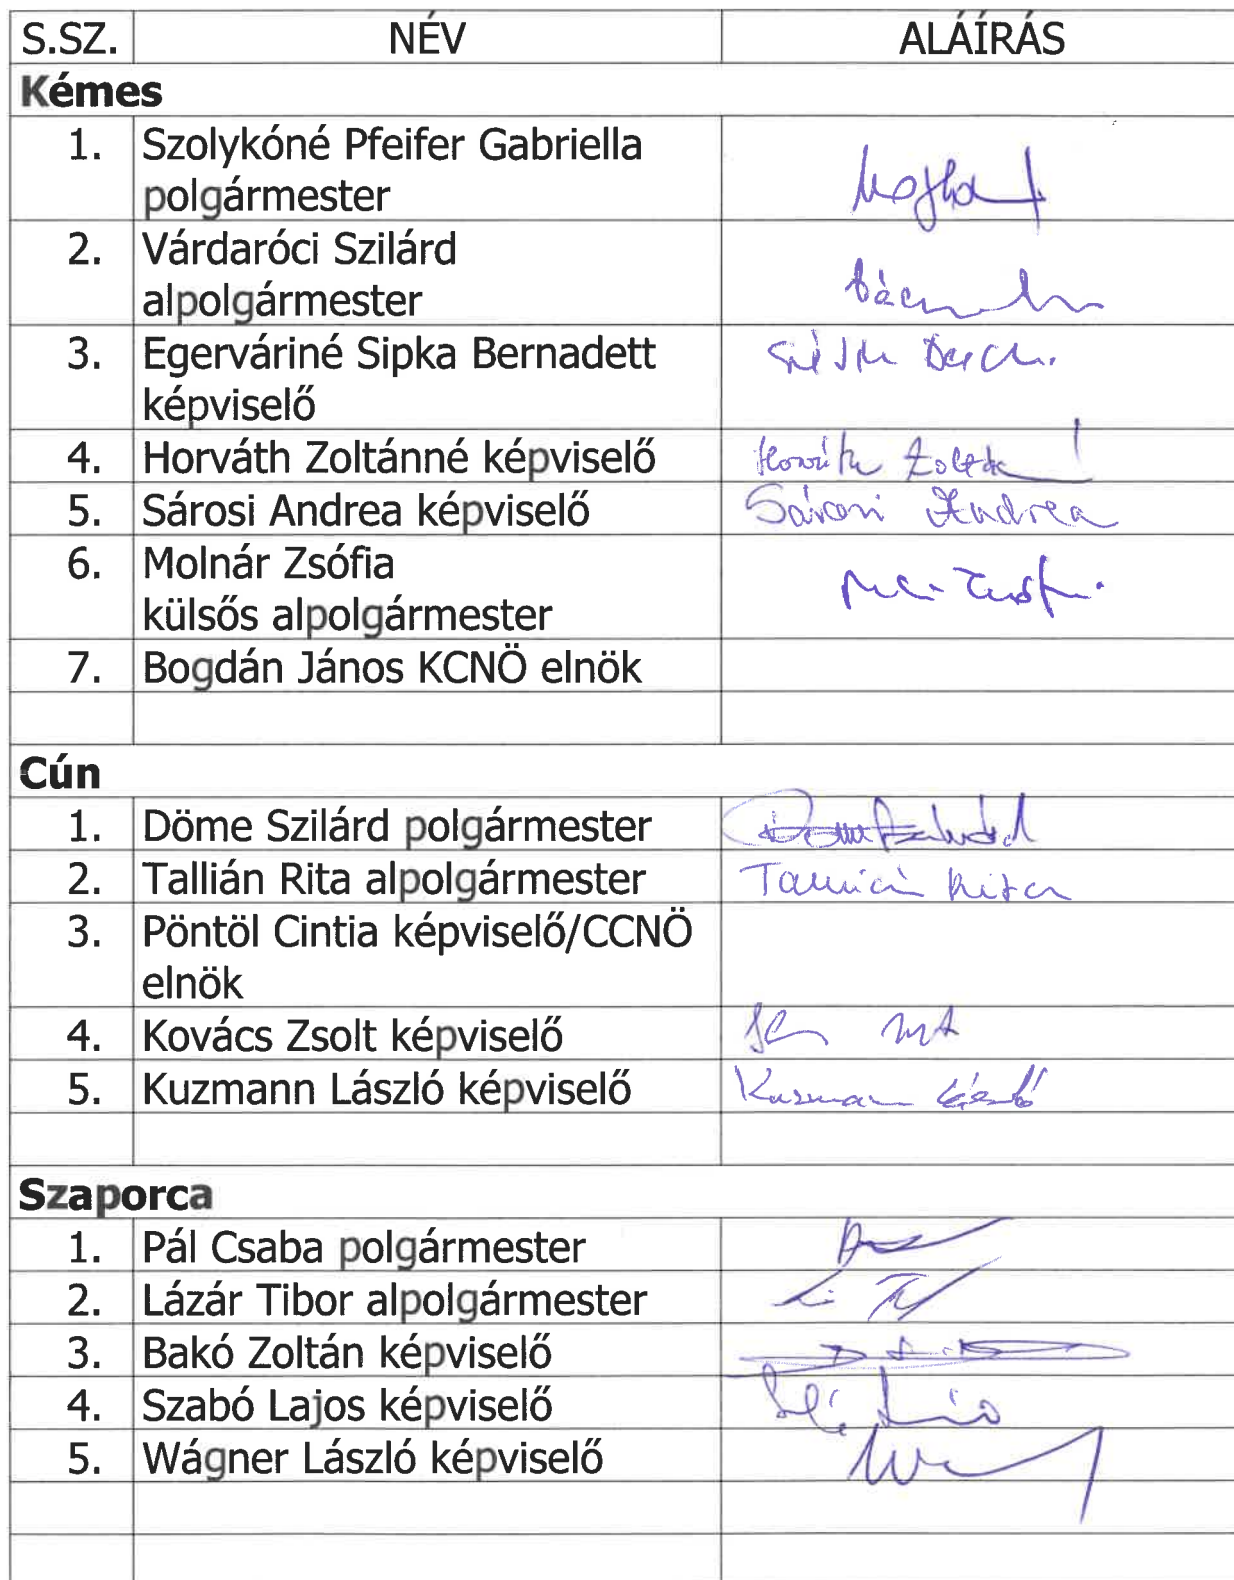 S.SZ. NÉV ALÁÍRÁS
Kémes
1. Szolykóné Pfeifer Gabriella
polgármester
2. Várdaróci Szilárd
alpolgármester
3. Egerváriné Sipka Bernadett
képviselő
4. Horváth Zoltánné képviselő Horváth
5. Sárosi Andrea képviselő Sárosi Andrea
6. Molnár Zsófia
külsős alpolgármester
7. Bogdán János KCNÖ elnök
Cún
1. Döme Szilárd polgármester
2. Tallián Rita alpolgármester Tallián Rita
3. Pöntöl Cintia képviselő/CCNÖ
elnök
4. Kovács Zsolt képviselő
5. Kuzmann László képviselő Kuzmann László
Szaporca
1. Pál Csaba polgármester
2. Lázár Tibor alpolgármester
3. Bakó Zoltán képviselő
4. Szabó Lajos képviselő
5. Wágner László képviselő